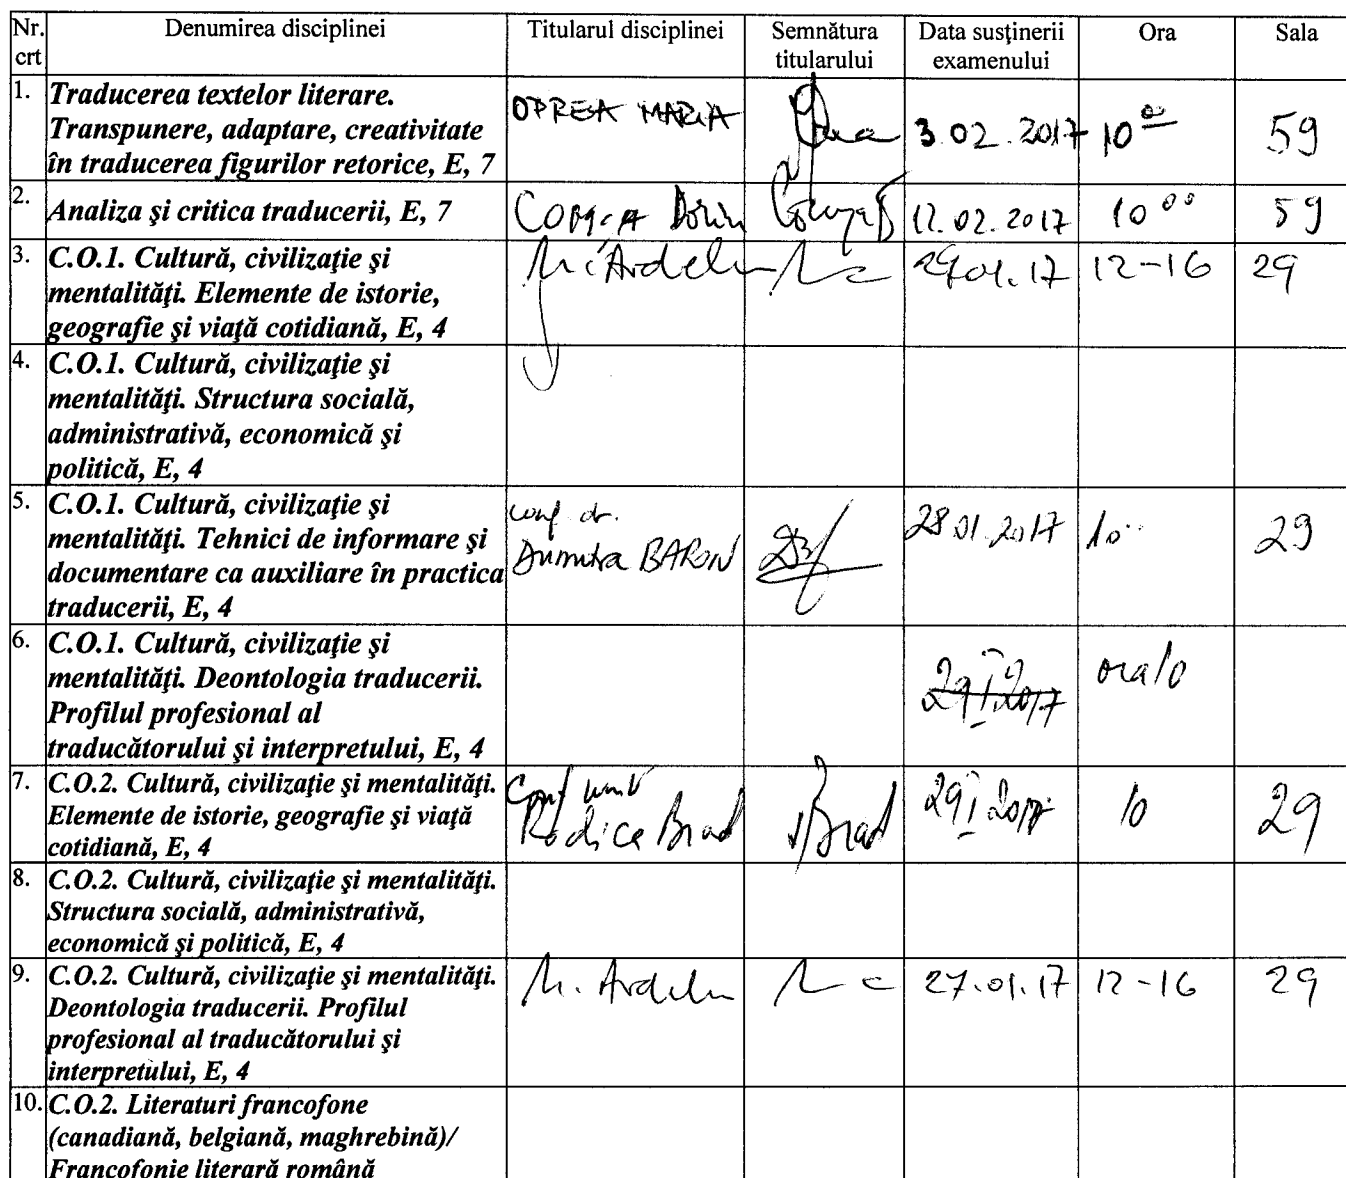 Nr. crt Denumirea disciplinei Titularul disciplinei Semnătura titularului Data susţinerii examenului Ora Sala
1. Traducerea textelor literare.
Transpunere, adaptare, creativitate
în traducerea figurilor retorice, E, 7
OPREA MARIA 3.02.2017 10 00 59
2. Analiza şi critica traducerii, E, 7
Dorin 12.02.2017 10 00 59
3. C.O.1. Cultură, civilizaţie şi
mentalităţi. Elemente de istorie,
geografie şi viaţă cotidiană, E, 4
12-16 29
4. C.O.1. Cultură, civilizaţie şi
mentalităţi. Structura socială,
administrativă, economică şi
politică, E, 4
5. C.O.1. Cultură, civilizaţie şi
mentalităţi. Tehnici de informare şi
documentare ca auxiliare în practica
traducerii, E, 4
conf. dr.
Dumitra BARON 28.01.2017 10 29
6. C.O.1. Cultură, civilizaţie şi
mentalităţi. Deontologia traducerii.
Profilul profesional al
traducătorului şi interpretului, E, 4
29 I 2017 ora 10
7. C.O.2. Cultură, civilizaţie şi mentalităţi.
Elemente de istorie, geografie şi viaţă
cotidiană, E, 4
Conf
Rodica Brad Brad 29 I 2017 10 29
8. C.O.2. Cultură, civilizaţie şi mentalităţi.
Structura socială, administrativă,
economică şi politică, E, 4
9. C.O.2. Cultură, civilizaţie şi mentalităţi.
Deontologia traducerii. Profilul
profesional al traducătorului şi
interpretului, E, 4
27.01.17 12-16 29
10. C.O.2. Literaturi francofone
(canadiană, belgiană, maghrebină)/
Francofonie literară română